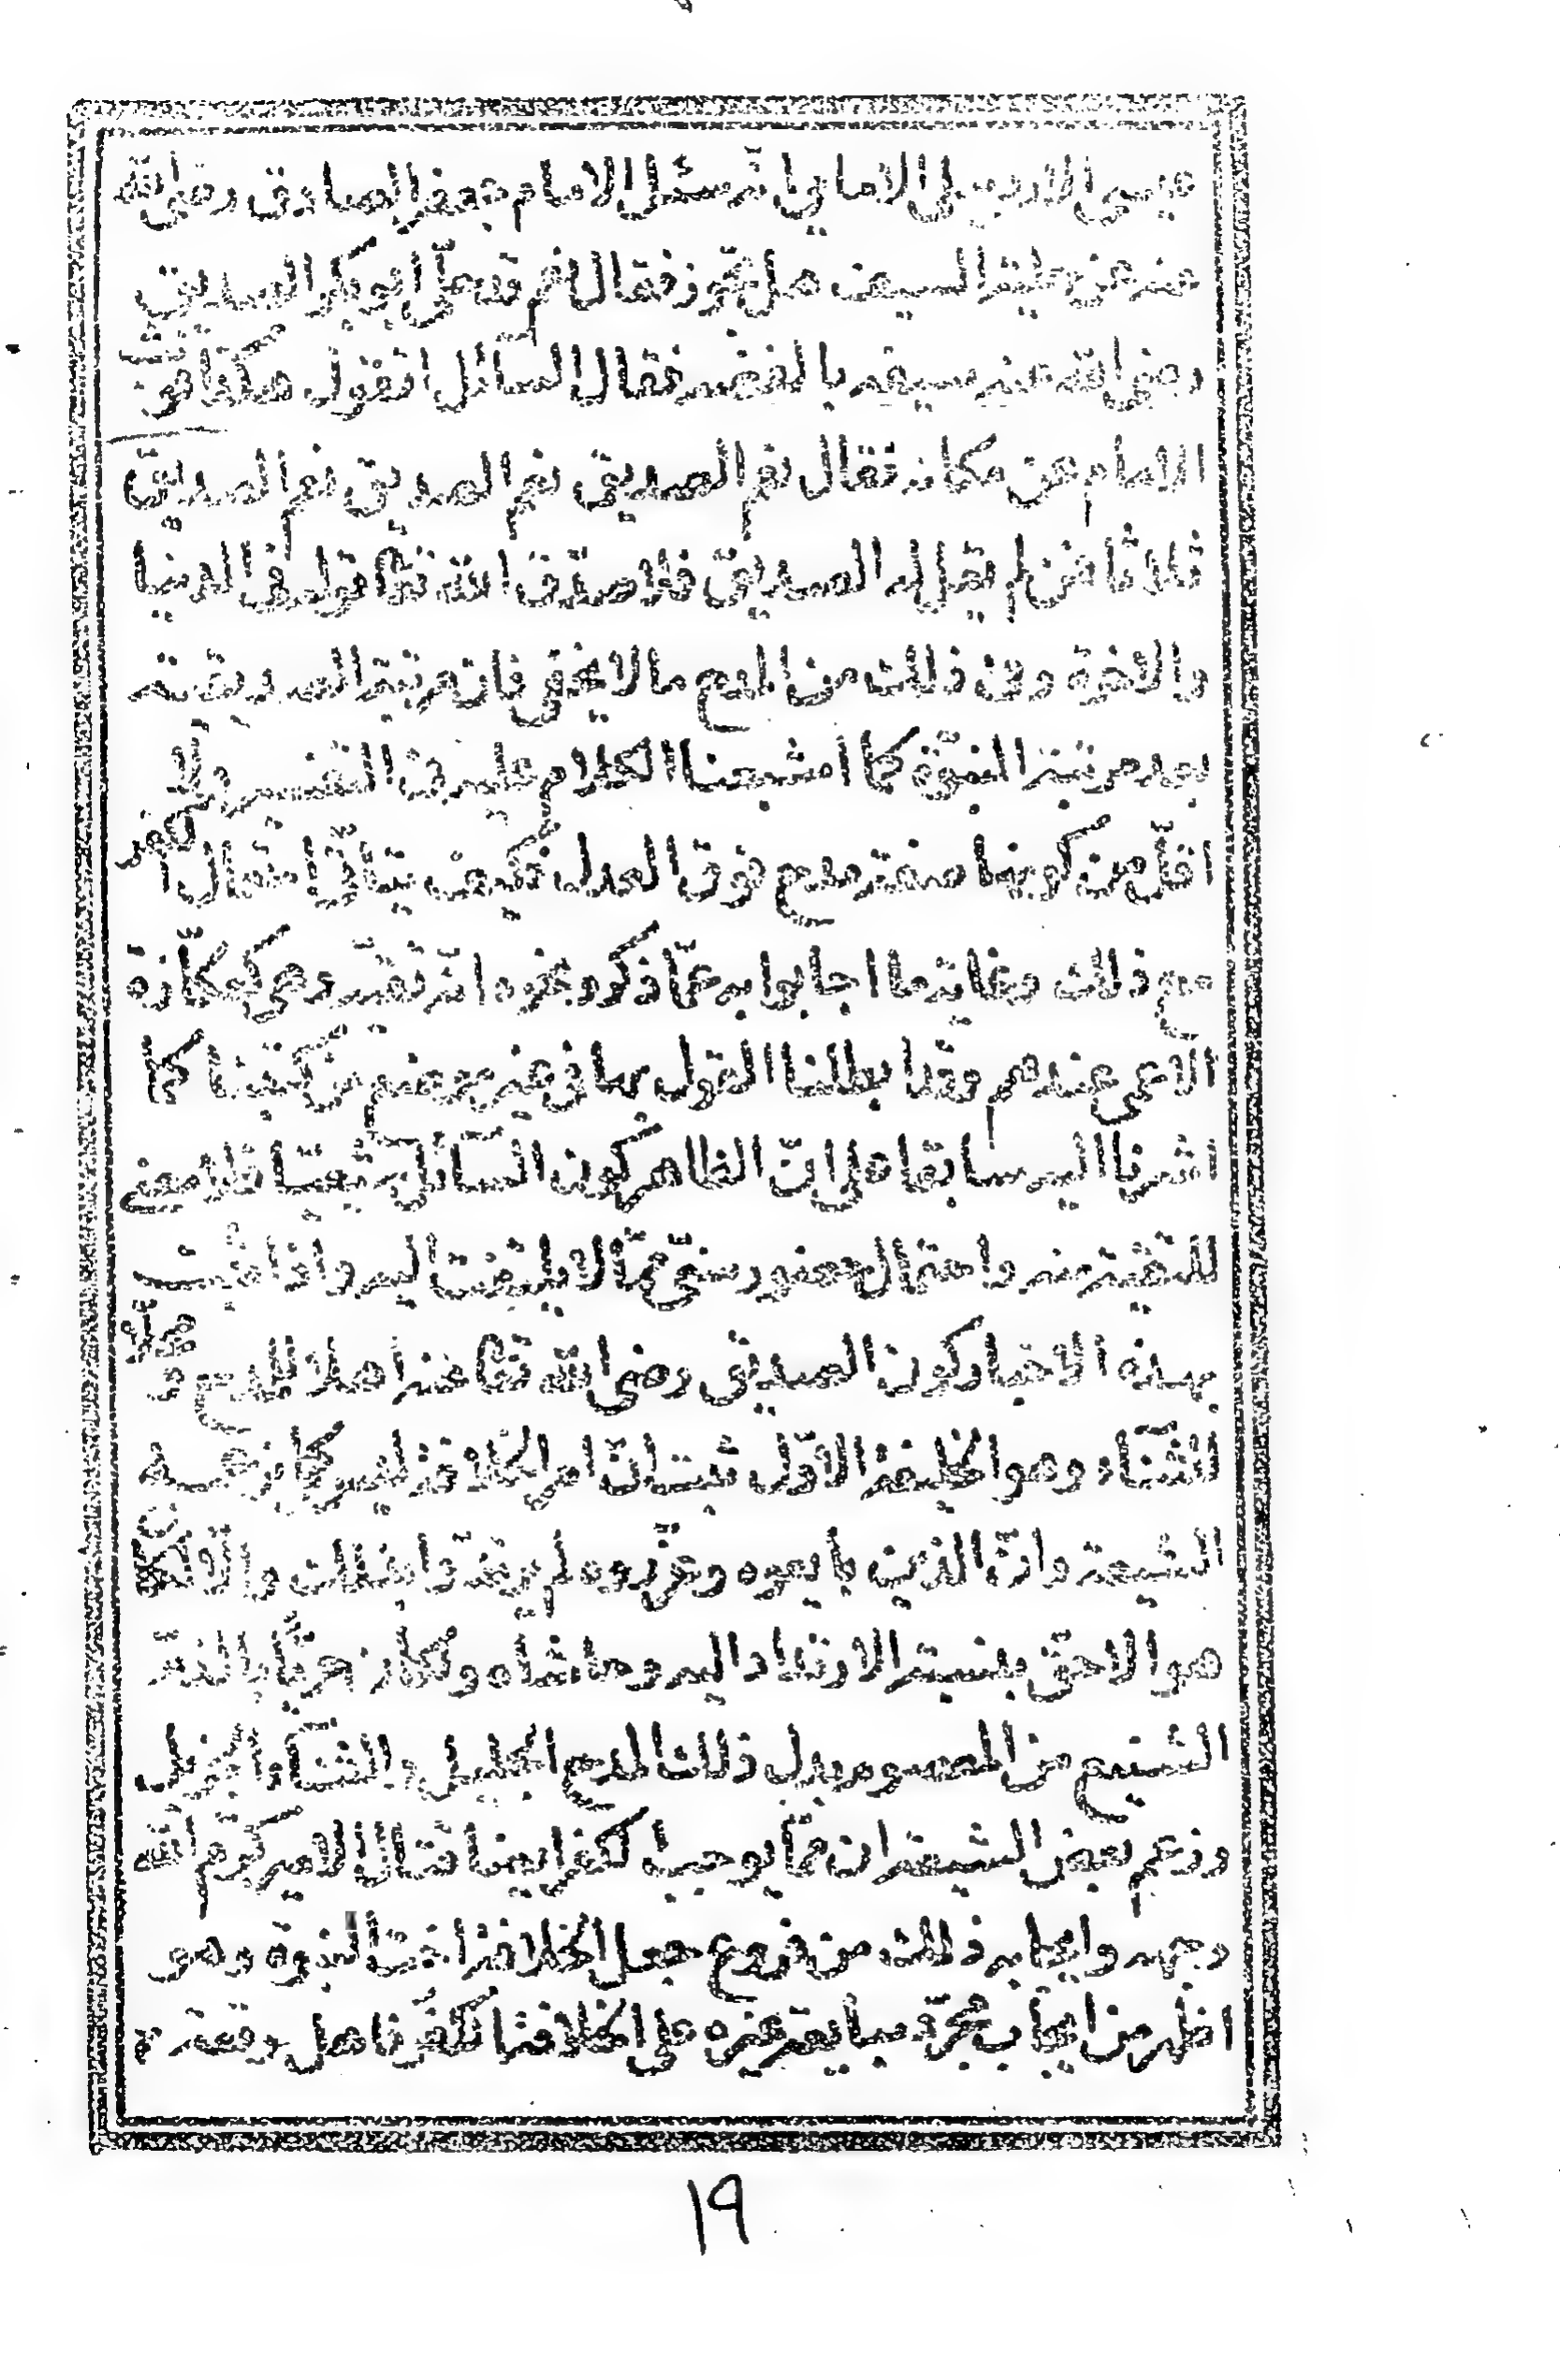 عيسى الاردبيلى الامامى انه سئل الامام جعفر الصادق رضى الله
عنه عن حلية السيف هل تجوز فقال نعم قد حلى ابو بكر الصديق
رضى الله عنه سيفه بالفضة فقال السائل اتقول هكذا فوثب
الامام عن مكانه فقال نعم الصديق نعم الصديق نعم الصديق
ثلاثا فمن لم يقل له الصديق فلا صدق الله تعالى قوله فى الدنيا
والاخرة وفى ذلك من المدح ما لا يخفى فان مرتبة الصديقية
بعد مرتبة النبوة كما اشبعنا الكلام عليه فى التفسير
اقل من كونها صفة مدح فوق العدل فكيف يتأتى
مع ذلك وغاية ما اجابوا به عما ذكر وغيره انه تقية وهى
الاعمى عندهم وقد ابطلنا القول بها فى غير موضع من كتبنا
اشرنا اليه سابقا على ان الظاهر كون السائل شيعيا فلا معنى
للتقية منه واحتمال حضور سنى مما لا يلتفت اليه واذا ثبت
بهذه الاخبار كون الصديق رضى الله تعالى عنه اهلا للمدح
الثناء وهو الخليفة الاول ثبت ان امر الخلافة ليس كما زعمه
الشيعة وان الذين بايعوه وعزروه لم يرتدوا بذلك والا
هو الاحق بنسبة الارتداد اليه وحاشاه ولكان حريا بالذم
الشنيع من المعصوم بدل ذلك المدح الجليل والثناء الجزيل
وزعم بعض الشيعة ان مما يوجب كفر ايضا قتال الامير كرم الله
وجهه وايجابه ذلك من فروع جعل الخلافة اخت النبوة وهو
اظهر من ايجاب مجرد مبايعة غيره على الخلافة الكفر فاهل وقعة
١٩